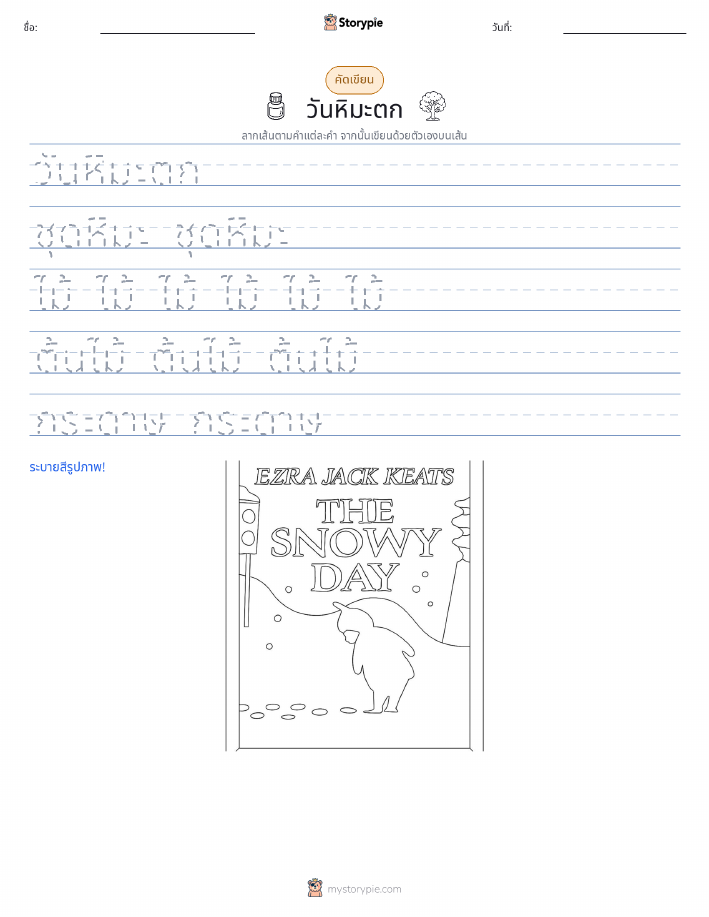 ชื่อ: Storypie วันที่:
คัดเขียน
วันหิมะตก
ลากเส้นตามคำแต่ละคำ จากนั้นเขียนด้วยตัวเองบนเส้น
วันหิมะตก
ชุดหิมะ ชุดหิมะ
ไม้ ไม้ ไม้ ไม้ ไม้ ไม้
ต้นไม้ ต้นไม้ ต้นไม้
กระดาษ กระดาษ
ระบายสีรูปภาพ!
EZRA JACK KEATS
THE
SNOWY
DAY
mystorypie.com